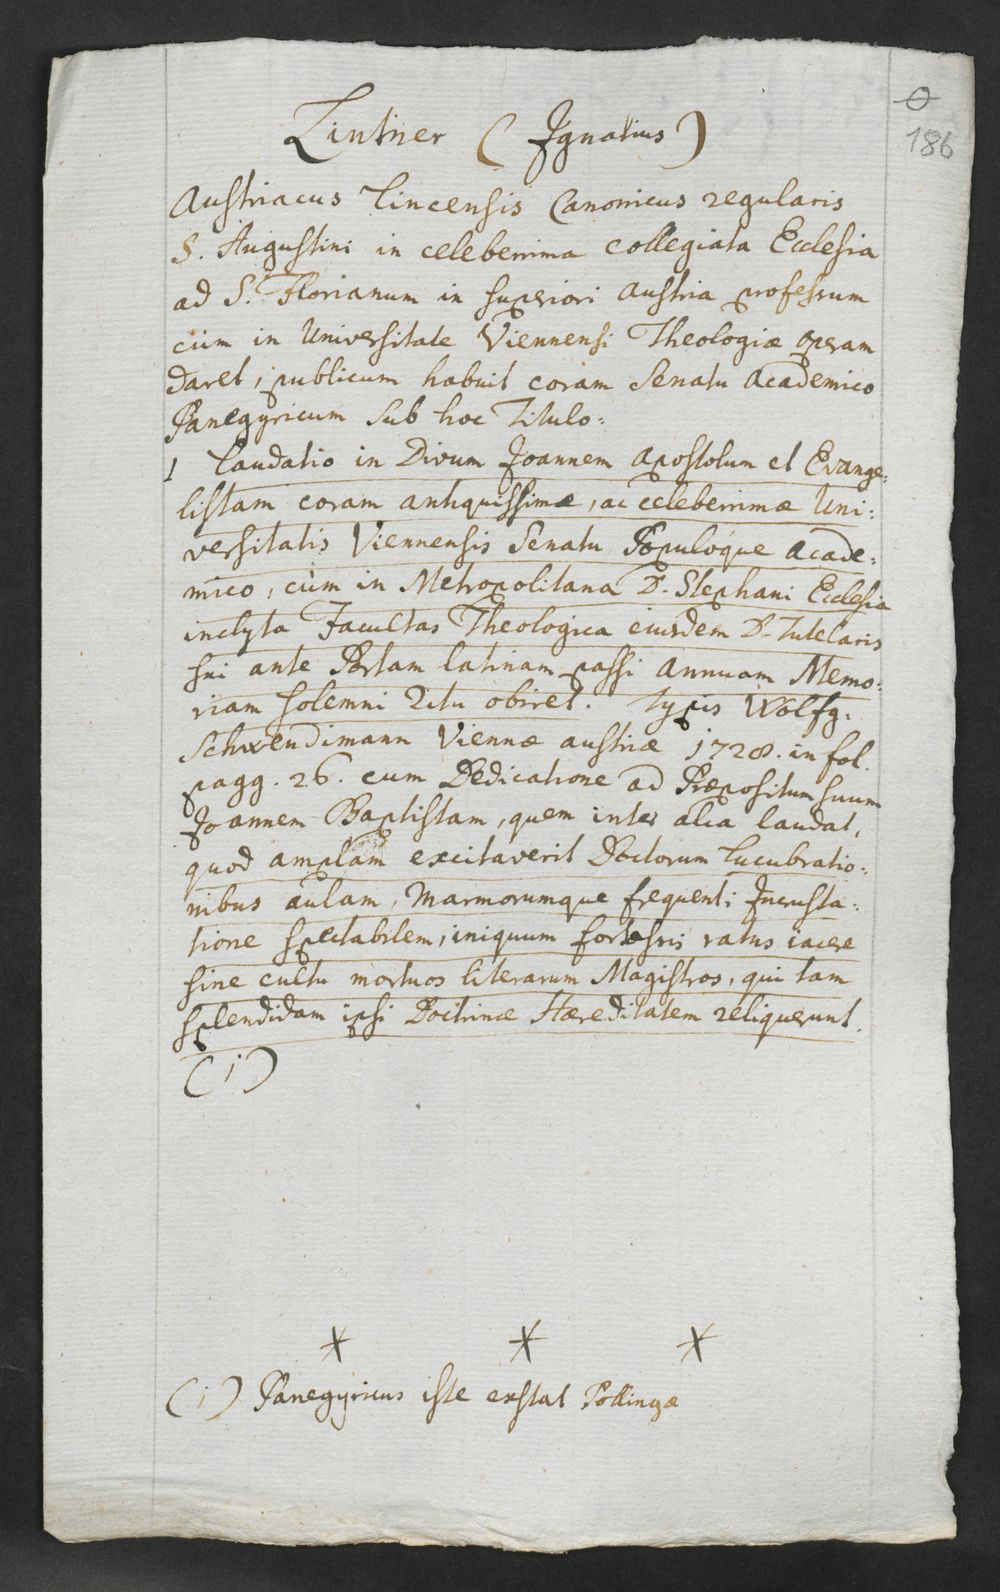 Lintner (Ignatius)
0
186
Austriacus Lincensis Canonicus regularis
S. Augustini in celeberrima Collegiata Ecclesia
ad S. Florianum in superiori Austria professum
cùm in Universitate Viennensi Theologiæ operam
daret, publicum habuit coram Senatu Academico
Panegyricum sub hoc Titulo:
1 Laudatio in Divum Joannem Apostolum et Evange:
listam coram antiquissimæ, ac celeberrimæ Uni:
versitatis Viennensis Senatu Populóque Acade:
mico, cùm in Metropolitana D. Stephani Ecclesia
inclyta Facultas Theologica eiusdem D. Tutelaris
sui ante Portam latinam passi Annuam Memo:
riam solemni Ritu obiret. Typis Wolfg.
Schwendimann Viennæ Austriæ 1728. in fol.
pagg. 26. cum Dedicatione ad Præpositum suum
Joannem Baptistam, quem inter alia laudat,
quod amplam excitaverit Doctorum Lucubratio:
nibus aulam, Marmorumque frequenti Incrusta:
tione spectabilem, iniquum ratus iacere
sine cultu mortuos literarum Magistros, qui tam
splendidam ipsi Doctrinæ Hæreditatem reliquerunt.
(1)
* * *
(1) Panegyricus iste exstat Pollingæ